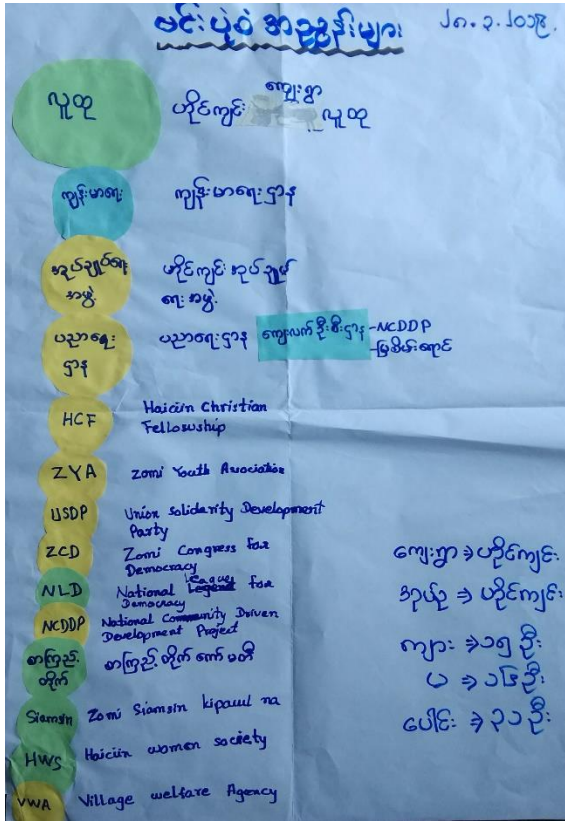 ဗင်းပုံစံ အညွှန်းများ ၂၈.၃.၂၀၁၉.
လူထု ဟိုင်ကျင်း ကျေးရွာ လူထု
ကျန်းမာရေး ကျန်းမာရေးဌာန
အုပ်ချုပ်ရေး အဖွဲ့ ဟိုင်ကျင်း အုပ်ချုပ်
ရေး အဖွဲ့
ပညာရေး ဌာန ပညာရေးဌာန ကျေးလက် ဦးစီးဌာန -NCDDP
-မြစိမ်းရောင်
HCF Haiciin Christian
Fellowship
ZYA Zomi Youth Association
USDP Union Solidarity Development
Party
ZCD Zomi Congress For
Democracy
NLD National League for
Democracy
NCDDP National Community Driven
Development Project
စာကြည့် တိုက် စာကြည့် တိုက် ကော် မတီ
Siamsin Zomi Siamsin kipawl na
HWS Haiciin women society
VWA Village welfare Agency
ကျေးရွာ ⇒ ဟိုင်ကျင်း
အုပ်စု ⇒ ဟိုင်ကျင်း
ကျား ⇒ ၁၅ ဦး
မ ⇒ ၁၆ ဦး
ပေါင်း ⇒ ၃၁ ဦး